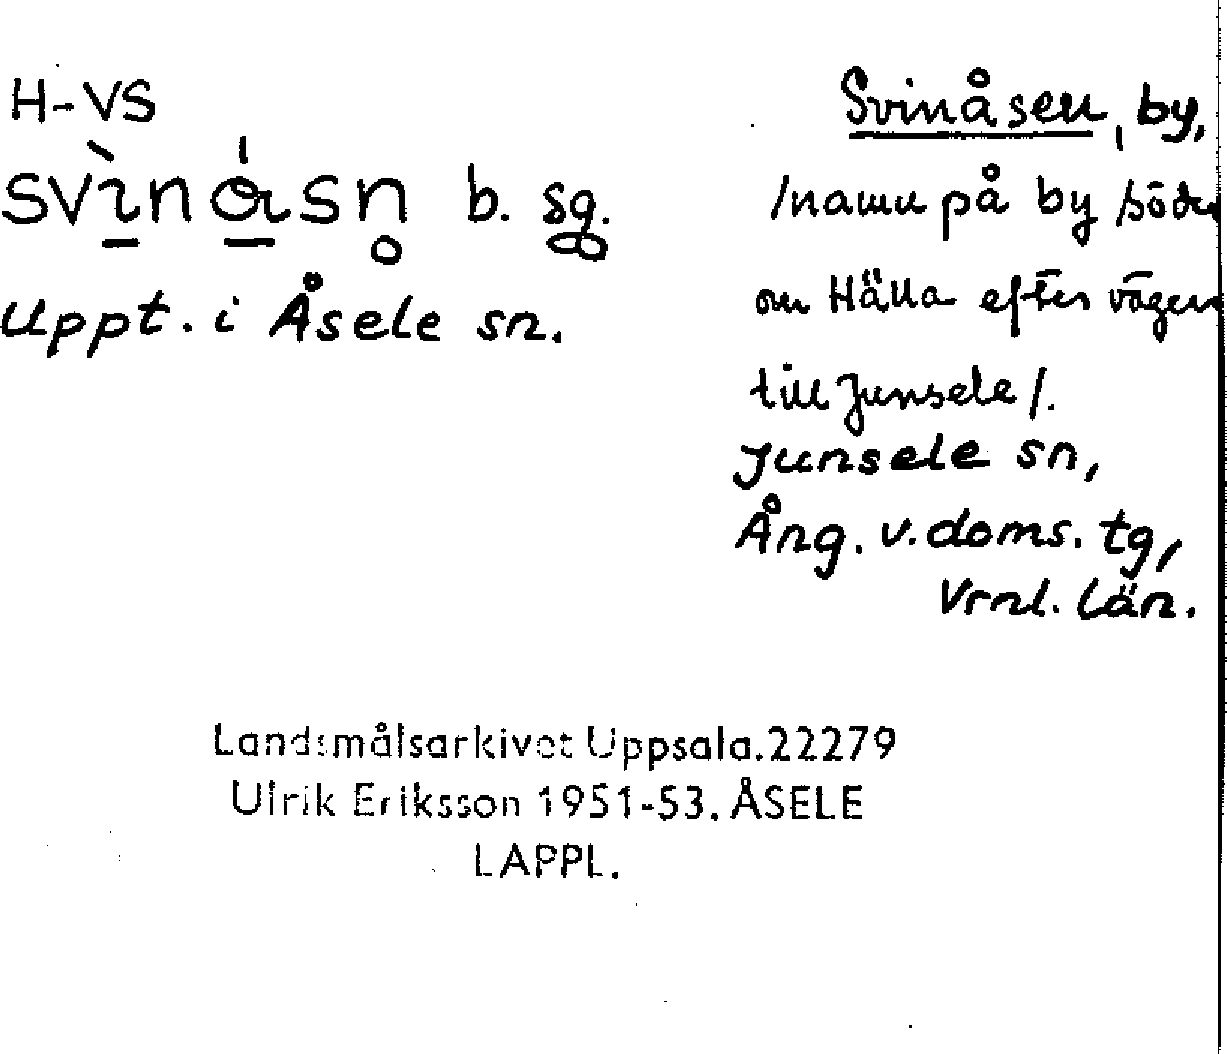 H-VS
svìnåsn b. sg.
Uppt. i Åsele sn.
Svinåsen, by,
/namn på by /söder
om Hälla efter vägen
till Junsele/.
Junsele sn,
Ång. v. doms. tg,
Vrnl. län.
Landsmålsarkivet Uppsala.22279
Ulrik Eriksson 1951-53. ÅSELE
LAPPL.